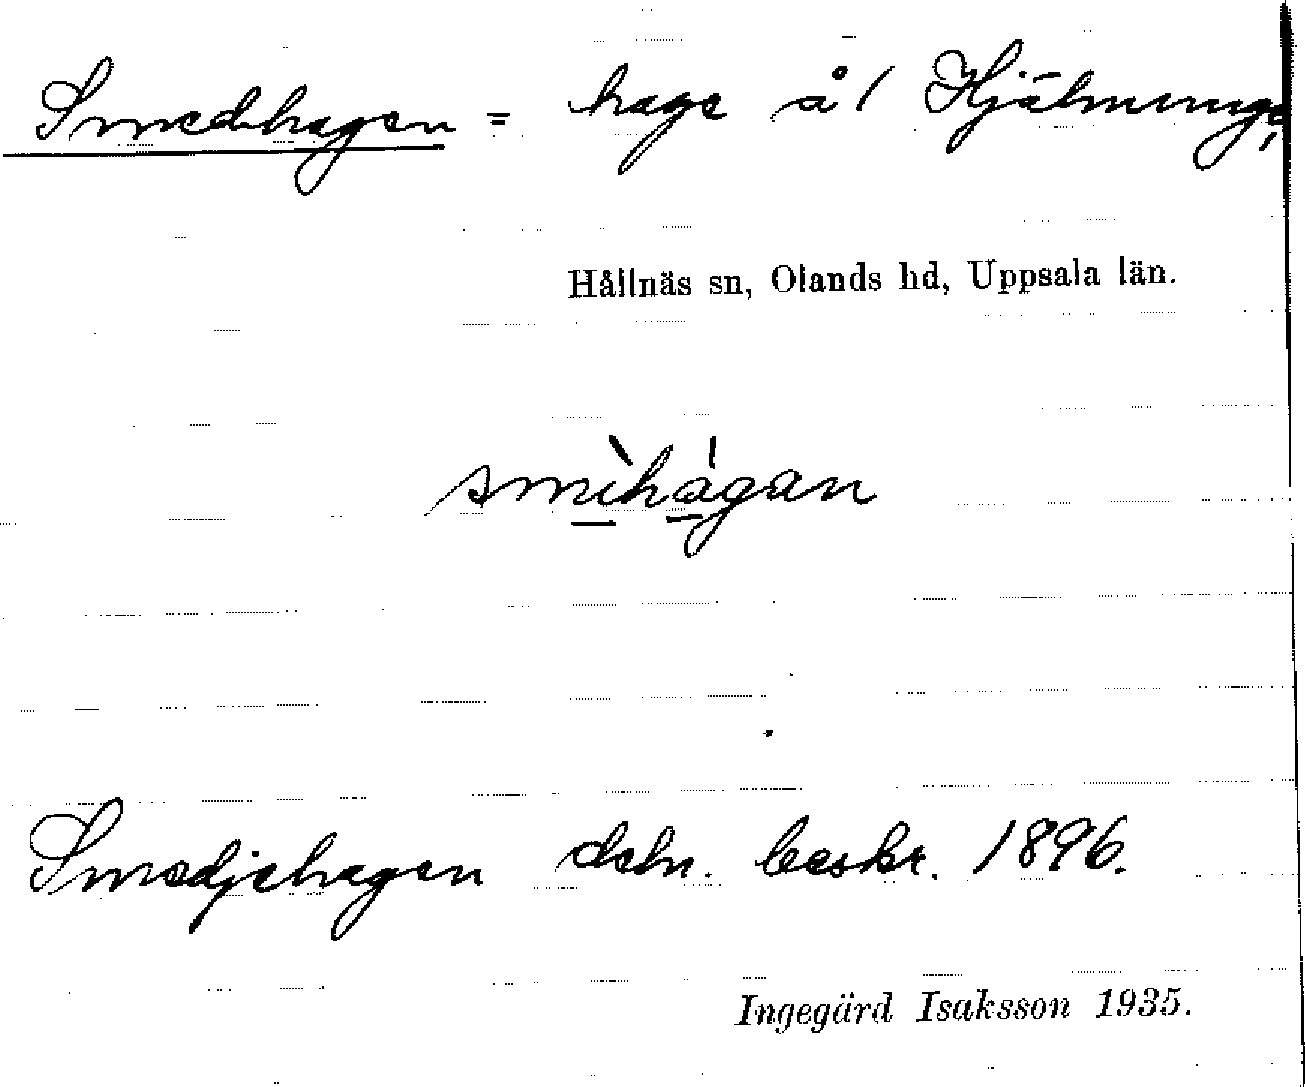 Smedhagen = hage å/ Hjälmunge,
Hållnäs sn, Olands hd, Uppsala län.
smìhágan
Smedjehagen dshr. beskr. 1896.
Ingegärd Isaksson 1935.